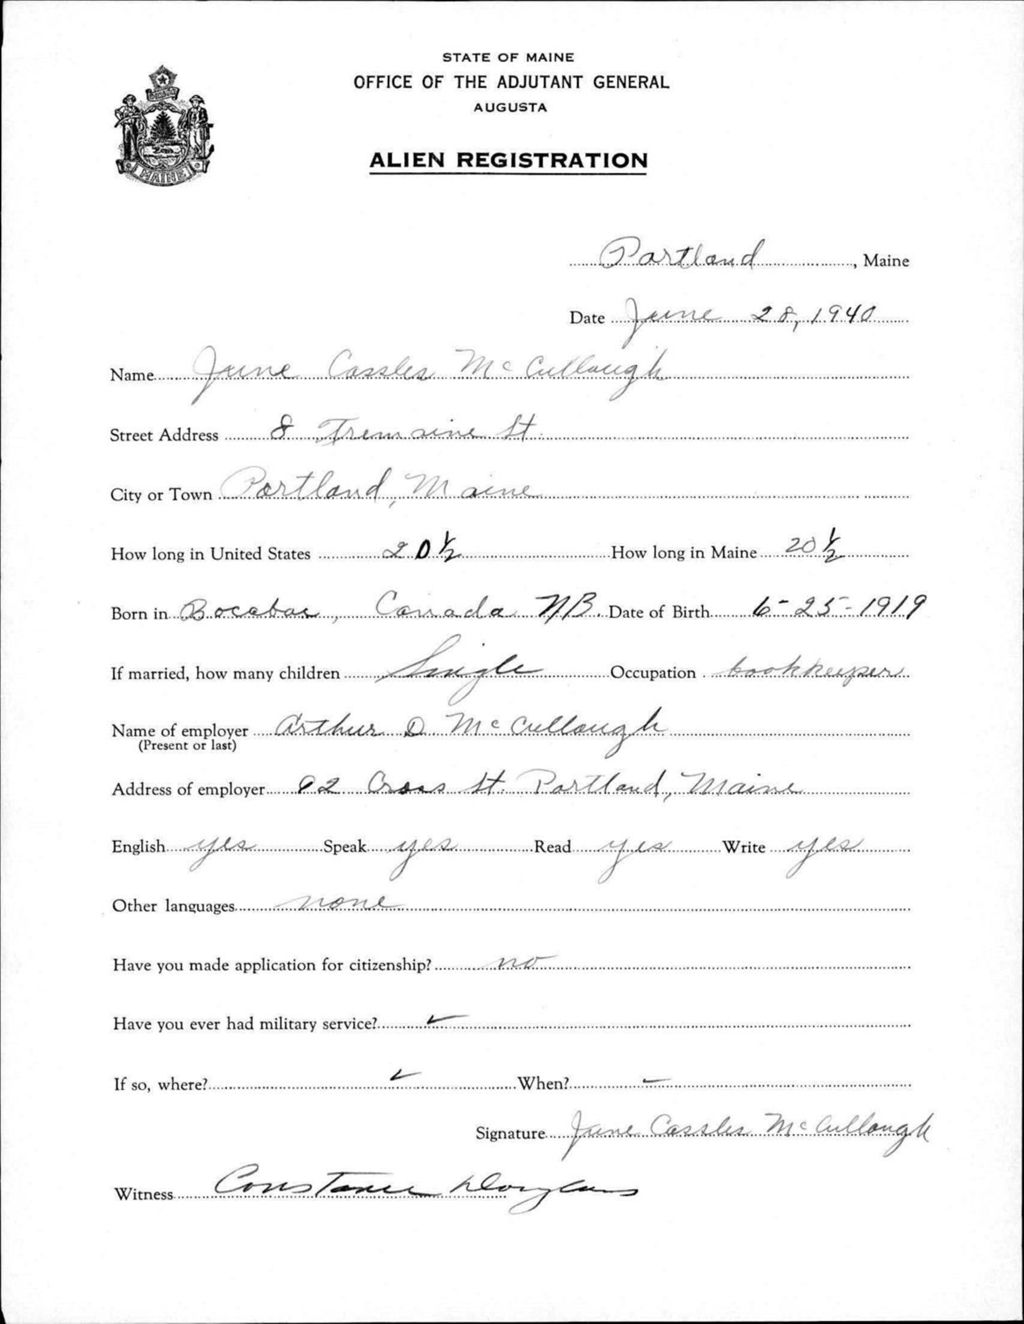 STATE OF MAINE
OFFICE OF THE ADJUTANT GENERAL
AUGUSTA
ALIEN REGISTRATION
MAINE
Portland, Maine
Date June 28, 1940
Name June Cassles McCullough
Street Address 8 Tremaine St.
City or Town Portland, Maine
How long in United States 20 ½ How long in Maine 20 ½
Born in Bocabac, Canada NB. Date of Birth 6-25-1919
If married, how many children Single Occupation bookkeeper
Name of employer Arthur D McCullough
(Present or last)
Address of employer 92 Cross St. Portland, Maine
English yes Speak yes Read yes Write yes
Other languages none
Have you made application for citizenship? no
Have you ever had military service? ✓
If so, where? ✓ When? -
Signature June Cassles McCullough
Witness Constance Douglass